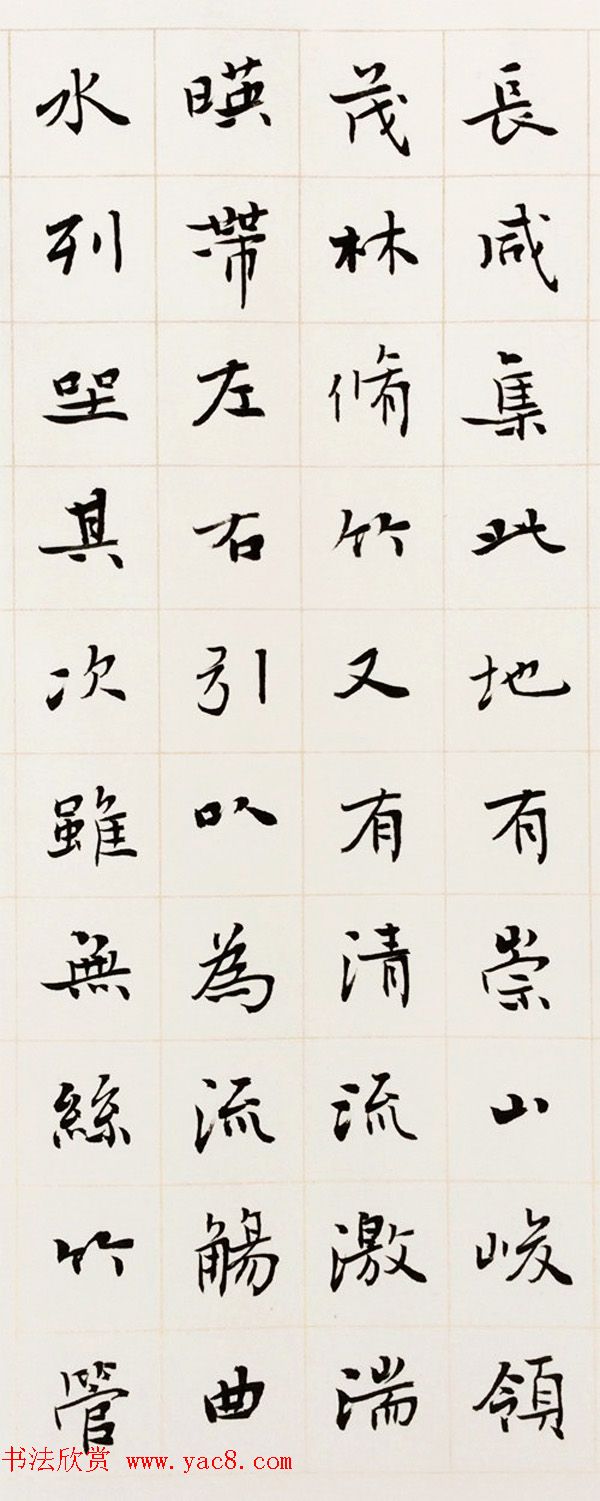 長咸集此地有崇山峻領
茂林脩竹又有清流激湍
暎帶左右引以為流觴曲
水列坐其次雖無絲竹管
书法欣赏 www.yac8.com